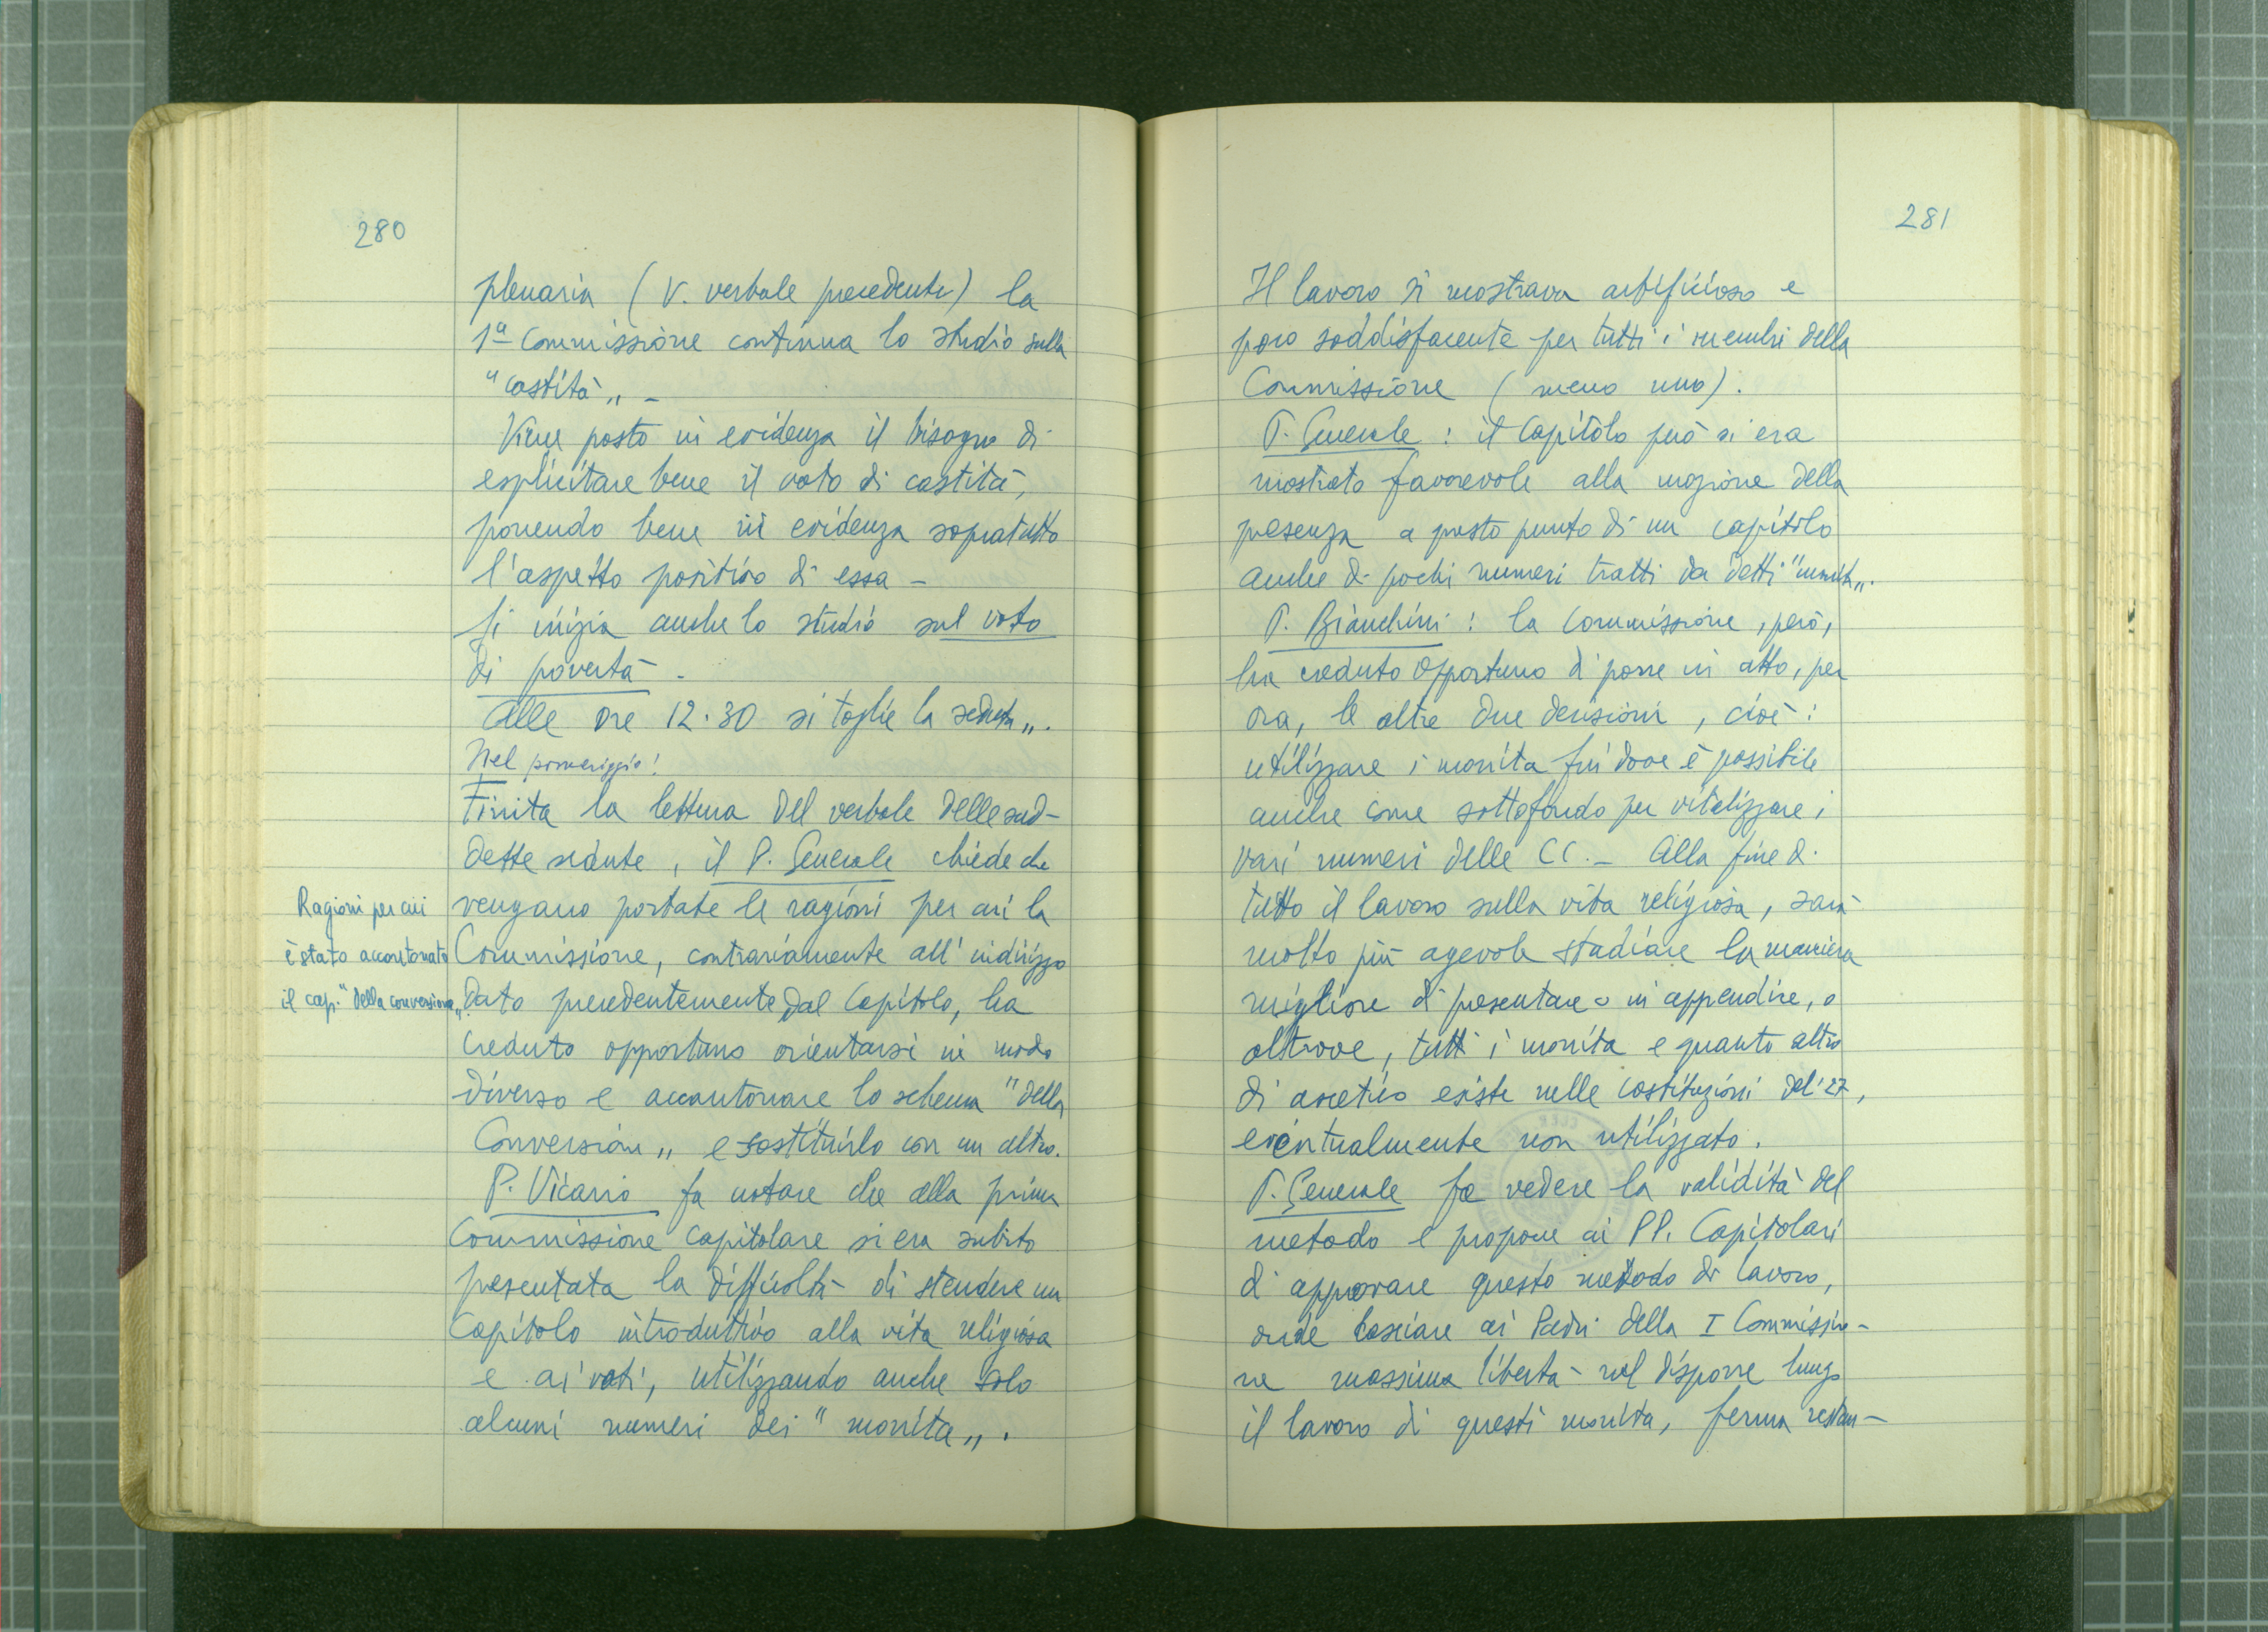 280
plenaria (V. verbale precedente) la
1ª Commissione continua lo studio sulla
"castità„ -
Viene posto in evidenza il bisogno di
esplicitare bene il voto di castità,
ponendo bene in evidenza sopratutto
l'aspetto positivo di essa -
Si inizia anche lo studio sul voto
di povertà -
Alle ore 12.30 si toglie la seduta„.
Nel pomeriggio:
Finita la lettura del verbale delle sud-
dette sedute, il P. Generale chiede che
vengano portate le ragioni per cui la
Commissione, contrariamente all'indirizzo
dato precedentemente dal Capitolo, ha
creduto opportuno orientarsi in modo
diverso e accantonare lo schema "della
Conversione„ e sostituirlo con un altro.
P. Vicario fa notare che alla prima
Commissione capitolare si era subito
presentata la difficoltà di stendere un
Capitolo introduttivo alla vita religiosa
e ai voti, utilizzando anche solo
alcuni numeri dei "monita„.
Ragioni per cui
è stato accantonato
il cap. "della conversione„
281
Il lavoro si mostrava artificioso e
poco soddisfacente per tutti i membri della
Commissione (meno uno).
P. Generale: il Capitolo però si era
mostrato favorevole alla mozione della
presenza a questo punto di un capitolo
anche di pochi numeri tratti da detti "monita„.
P. Bianchini: la Commissione, però,
ha creduto opportuno di porre in atto, per
ora, le altre due decisioni, cioè:
utilizzare i monita fin dove è possibile
anche come sottofondo per vitalizzare i
vari numeri delle CC. - Alla fine di
tutto il lavoro sulla vita religiosa, sarà
molto più agevole studiare la maniera
migliore di presentare o in appendice, o
altrove, tutti i monita e quanto altro
di ascetico esiste nelle costituzioni del '27,
eventualmente non utilizzato.
P. Generale fa vedere la validità del
metodo e propone ai PP. Capitolari
di approvare questo metodo di lavoro,
onde lasciare ai Padri della I Commissio-
ne massima libertà nel disporre lungo
il lavoro di questi monita, ferma restan-